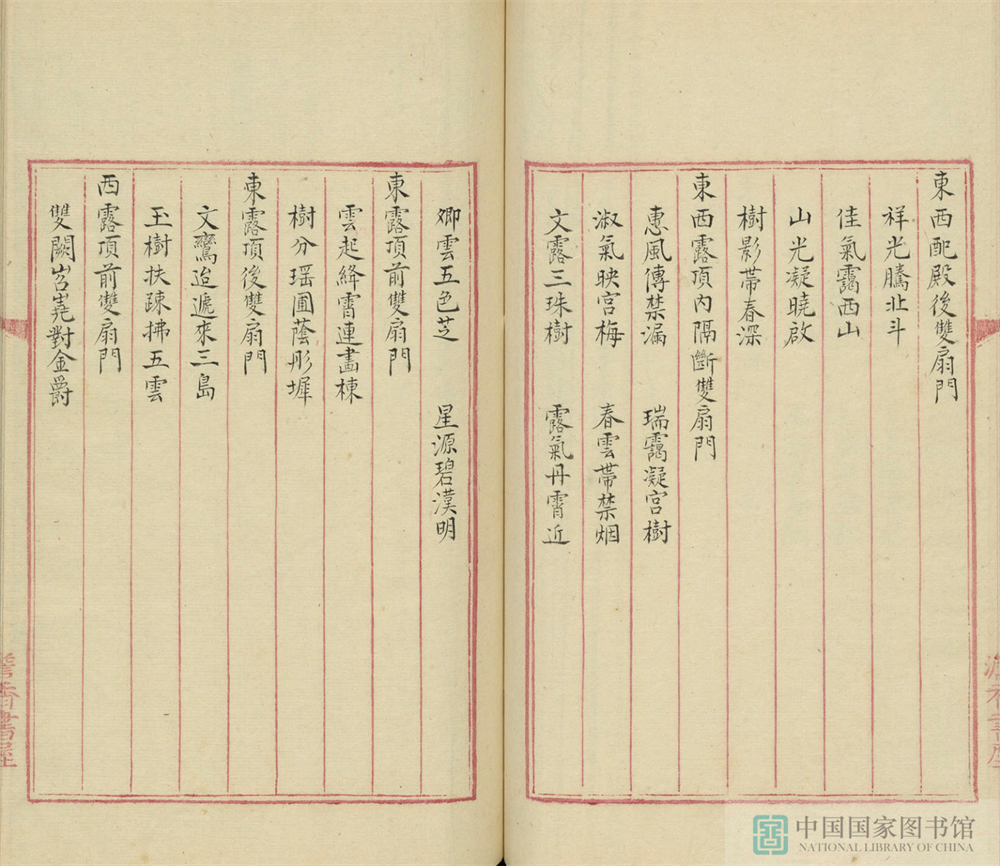 東西配殿後雙扇門
祥光騰北斗
佳氣靄西山
山光凝曉啟
樹影帶春深
東西露頂內隔斷雙扇門
惠風傳禁漏　瑞靄凝宮樹
淑氣映宮梅　春雲帶禁烟
文露三珠樹　露氣丹霄近
卿雲五色芝　星源碧漢明
東露頂前雙扇門
雲起絳霄連畵棟
樹分瑶圃蔭彤墀
東露頂後雙扇門
文鸞迨遞來三島
玉樹扶疎拂五雲
西露頂前雙扇門
雙闕岧嶤對金爵
書屋
中国国家图书馆
NATIONAL LIBRARY OF CHINA